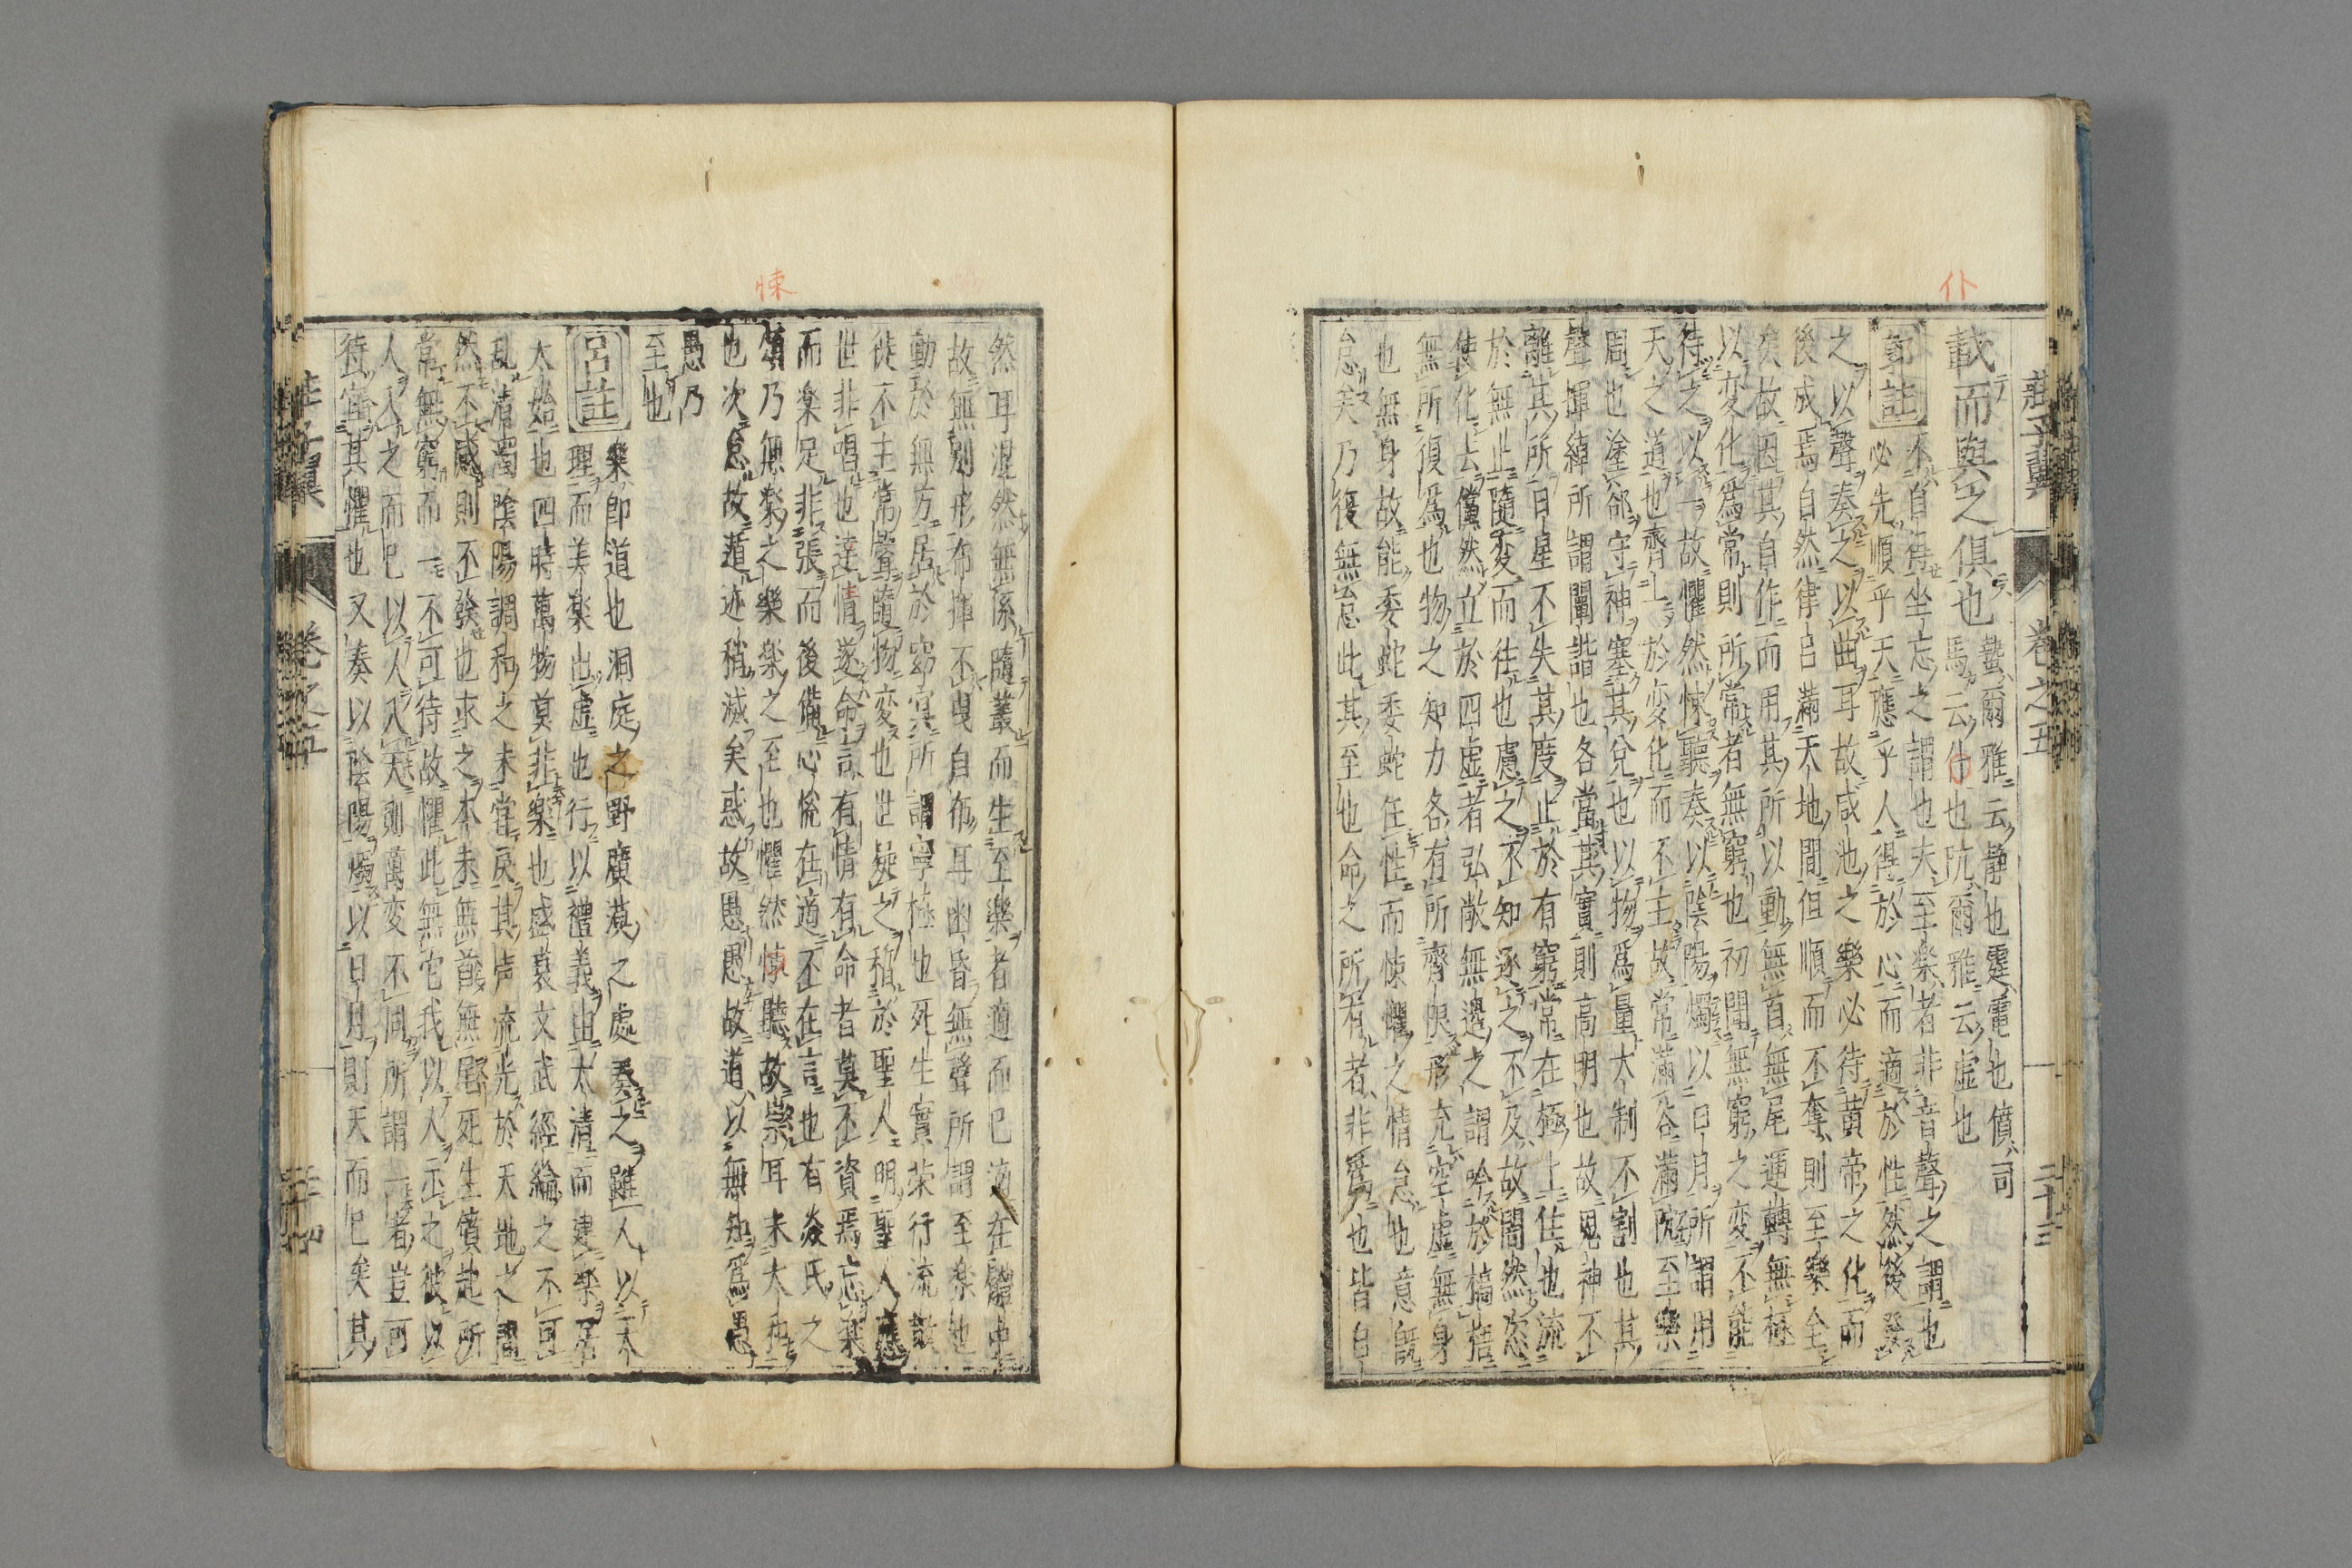 莊子翼 卷之五 二十三
仆
載而與之俱也 蟄爾雅云静也霆電也僨司
馬云仆也阬爾雅云虚也
郭註 不自得坐忘之謂也夫至楽者非音聲之謂也
必先順乎天應乎人得於心而適於性然後發
之以聲奏之以曲耳故咸池之樂必待黄帝之化而
後成焉自然律呂滿天地間但順而不奪則至樂全
矣故因其自作而用其所以動無首無尾運轉無極
以変化爲常則所常者無窮也初聞無窮之変不能
待之以一故懼然悚聽奏以陰陽燭以日月所謂用
天之道也齊一於変化而不主故常滿谷滿阬至樂
周也塗郤守神塞其兌也以物爲量大制不割也其
聲揮綽所謂闡諧也各當其實則高明也故鬼神不
離其所日星不失其度止於有窮常在極上住也流
於無止隨変而往也慮之不知逐之不及故闇然恣
使化去儻然立於四虚者弘敞無邊之謂吟於槁梧
無所復爲也物之知力各有所齊限形充空虚無身
也無身故能委蛇委蛇任性而悚懼之情怠也意既
怠矣乃復無怠此其至也命之所有者非爲也皆自
然耳混然無係隨叢而生至楽者適而已適在體中
故無別形布揮不曳自布耳幽昏無聲所謂至楽也
動於無方居於窈冥所謂寧極也死生實荣行流散
徙不主常聲隨物変也世疑之稽於聖人明聖人應
世非唱也達情遂命言有情有命者莫不資焉忘楽
而楽足非張而後備心悅在適不在言也有焱氏之
頌乃無楽之樂楽之至也懼然悚聽故祟耳未大和
悚
也次怠故遁迹稍滅矣惑故愚愚故道以無知爲愚
愚乃
至也
呂註 樂即道也洞庭之野廣漠之處奏之雖人以太
理而美楽出虚也行以禮義由太清而建楽居
太始也四時萬物莫非樂也盛衰文武經綸之不可
乱清濁陰陽調和之未當戾其声流光於天地之間
然不感則不發也求之本未無首無尾死生僨起所
常無窮而一不可待故懼此無它我以人示之彼以
人入之而已以人入天則萬変不同所謂一者豈可
待宜其懼也又奏以陰陽燭以日月則天而已矣其
莊子翼 卷之五 二十四